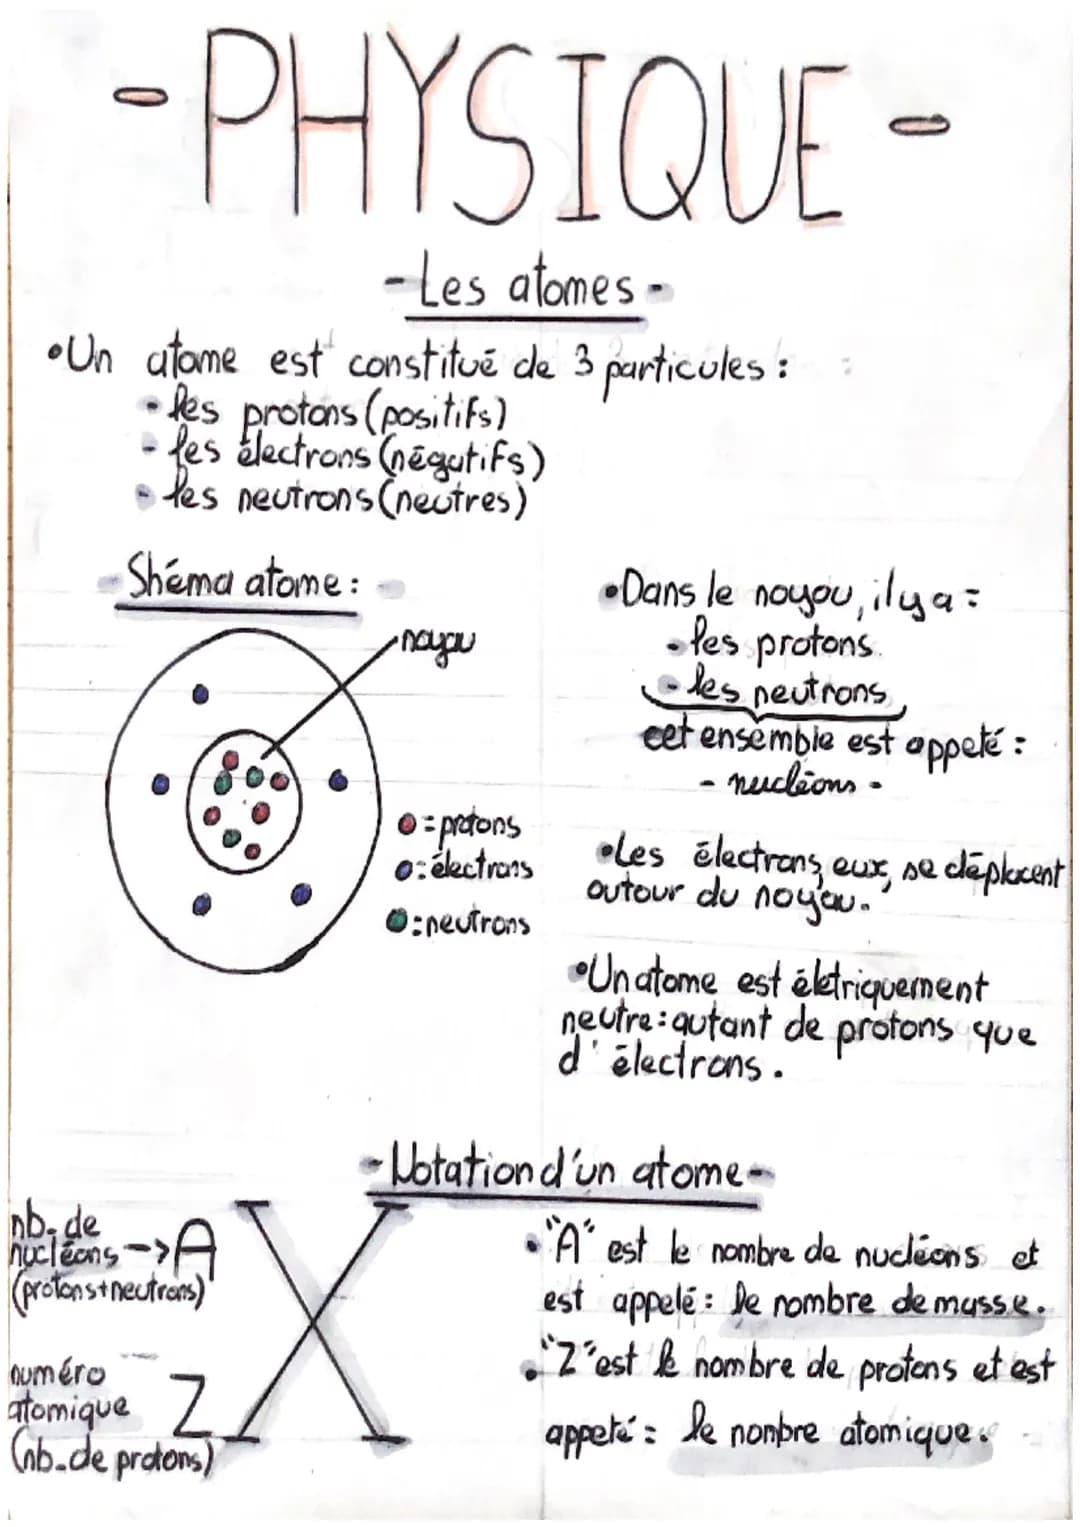 - PHYSIQUE -
- Les atomes -
• Un atome est constitué de 3 particules :
- les protons (positifs)
- les électrons (négatifs)
- les neutrons (neutres)
- Shéma atome : -
noyau
= protons
: électrons
: neutrons
• Dans le noyou, il y a :
- les protons
- les neutrons
cet ensemble est appelé :
- nucléons -
• Les électrons, eux, se déplacent
autour du noyau.
• Un atome est élétriquement
neutre : autant de protons que
d'électrons.
- Notation d'un atome -
nb. de
nucléons -> A
(protons + neutrons)
X
numéro
atomique Z
(nb. de protons)
• "A" est le nombre de nucléons et
est appelé : le nombre de masse.
• "Z" est le nombre de protons et est
appelé : le nonbre atomique.